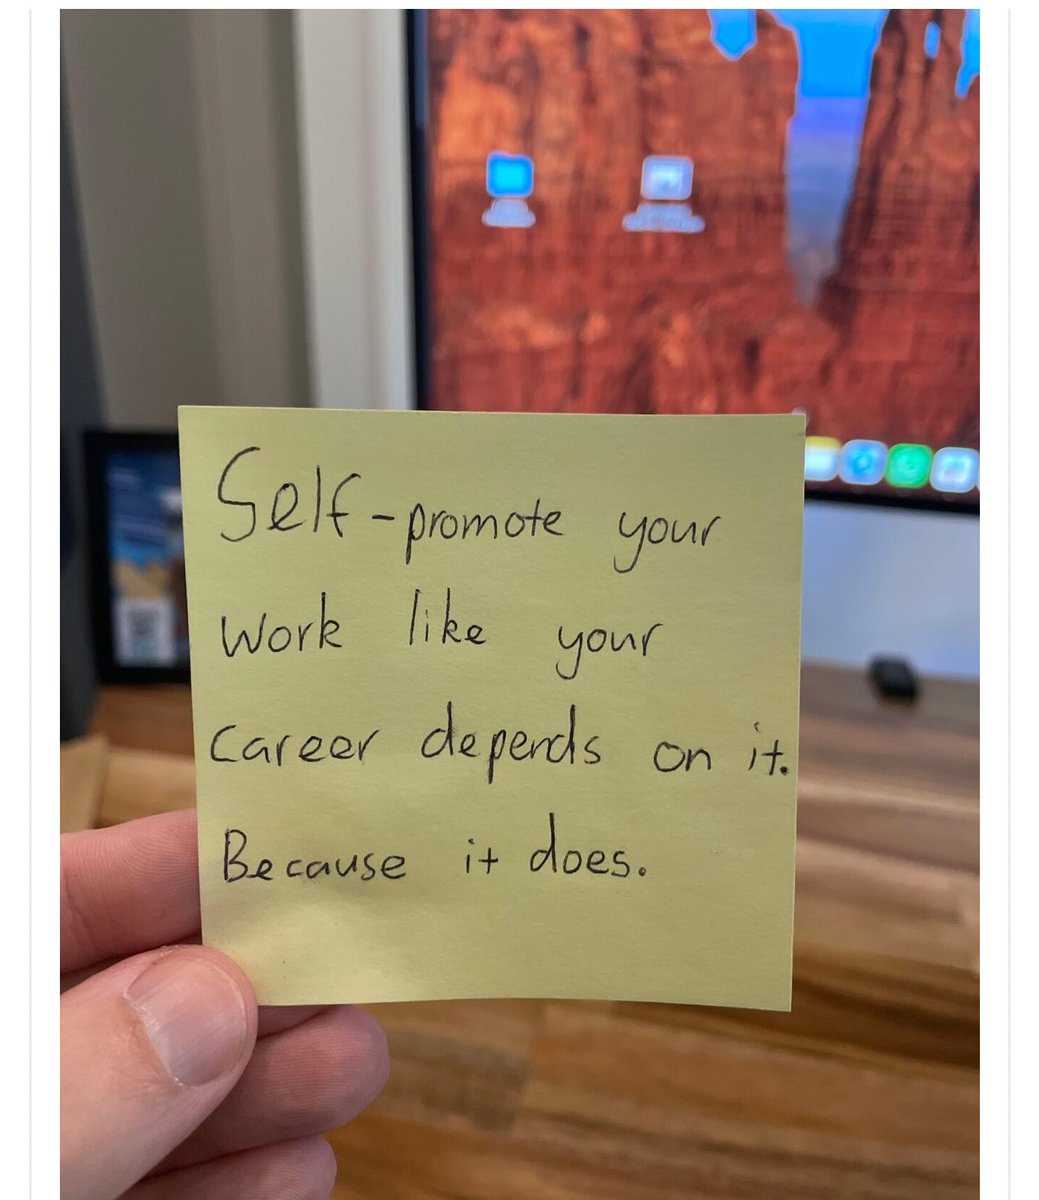 Self-promote your
work like your
career depends on it.
Because it does.